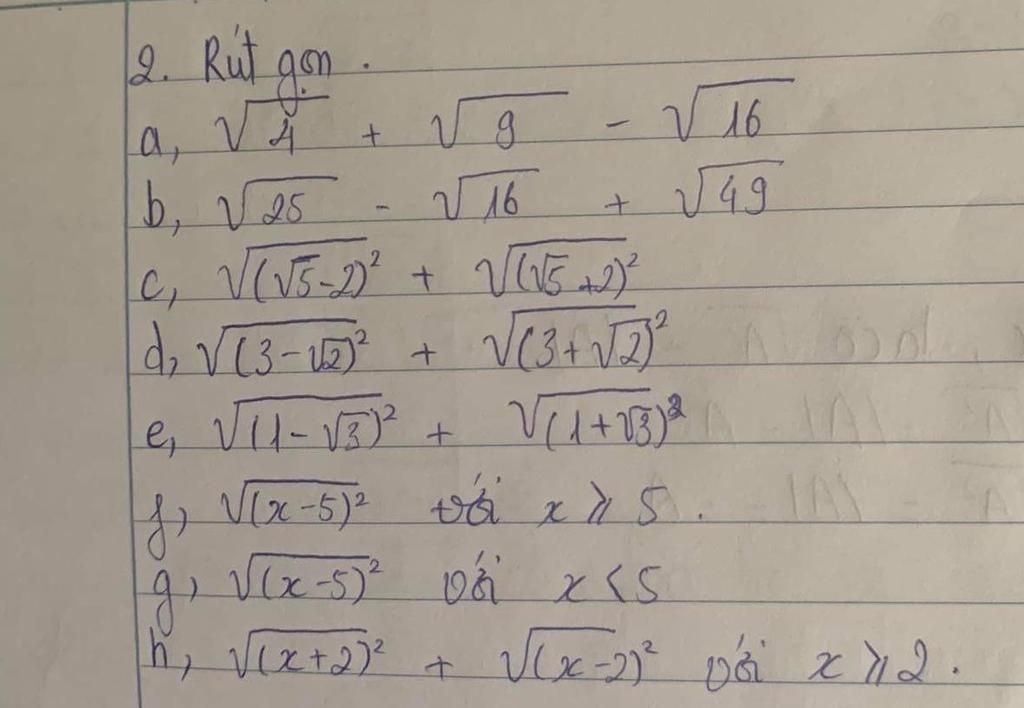 2. Rút gọn.
a, √4 + √9 - √16
b, √25 - √16 + √49
c, √(√5-2)² + √(√5+2)²
d, √(3-√2)² + √(3+√2)²
e, √(1-√3)² + √(1+√3)²
f, √(x-5)² với x ≥ 5.
g, √(x-5)² với x < 5
h, √(x+2)² + √(x-2)² với x ≥ 2.